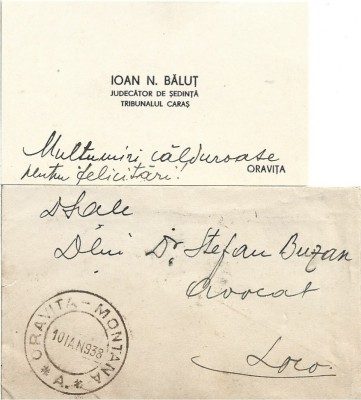 IOAN N. BĂLUȚ
JUDECĂTOR DE ȘEDINȚĂ
TRIBUNALUL CARAȘ
Multumiri călduroase
pentru felicitări!
ORAVIȚA
DSale
Dlui Dr Ștefan Buzan
Avocat
Loco.
ORAVITA-MONTANA
10 IAN 938
* A. *